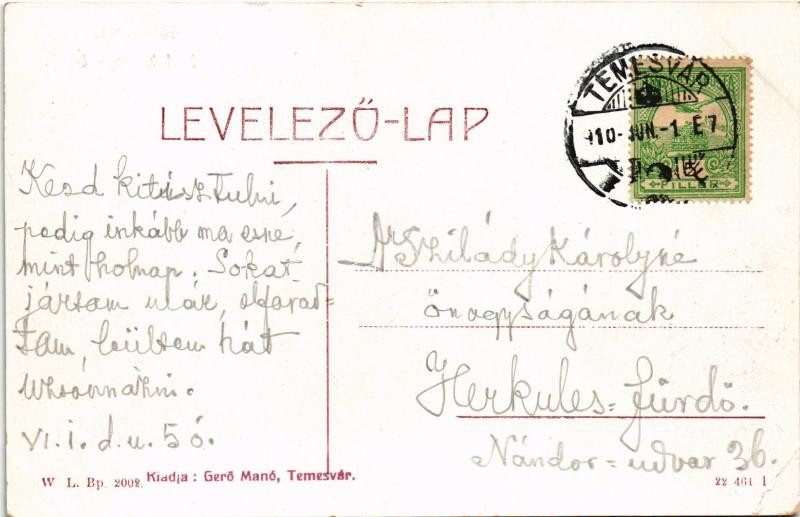 LEVELEZŐ-LAP
TEMESVÁR
910-JUN.-1 E7
FILLÉR
Kezd kitisztulni,
pedig inkább ma esne,
mint holnap. Sokat
jártam utána, elfárad-
tam, leültem hát
uzsonnázni.
VI. 1. d. u. 5 ó.
Szilády Károlyné
önagyságának
Herkules-fürdő.
Nándor-udvar 36.
W. L. Bp. 2002.
Kiadja: Gerő Manó, Temesvár.
22 461 1